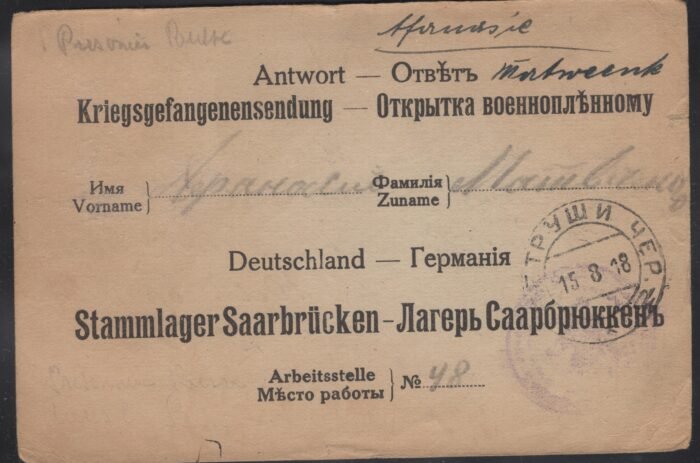 Prisonier Russe
Afanasie
Antwort — Отвѣтъ Matweenk
Kriegsgefangenensendung — Открытка военноплѣнному
Имя Vorname } Афанасий Фамилія Zuname }
ТРУШИ ЧЕР.
15 8 18
Deutschland — Германія
Stammlager Saarbrücken - Лагерь Саарбрюккенъ
Arbeitsstelle
Мѣсто работы } № 48